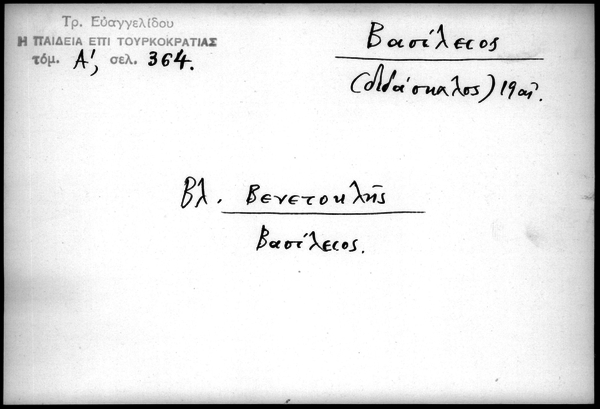 Τρ. Εὐαγγελίδου
Η ΠΑΙΔΕΙΑ ΕΠΙ ΤΟΥΡΚΟΚΡΑΤΙΑΣ
τόμ. Α', σελ. 364.
Βασίλειος
(διδάσκαλος) 19 αἰ.
Βλ. Βενετοκλῆς
Βασίλειος.